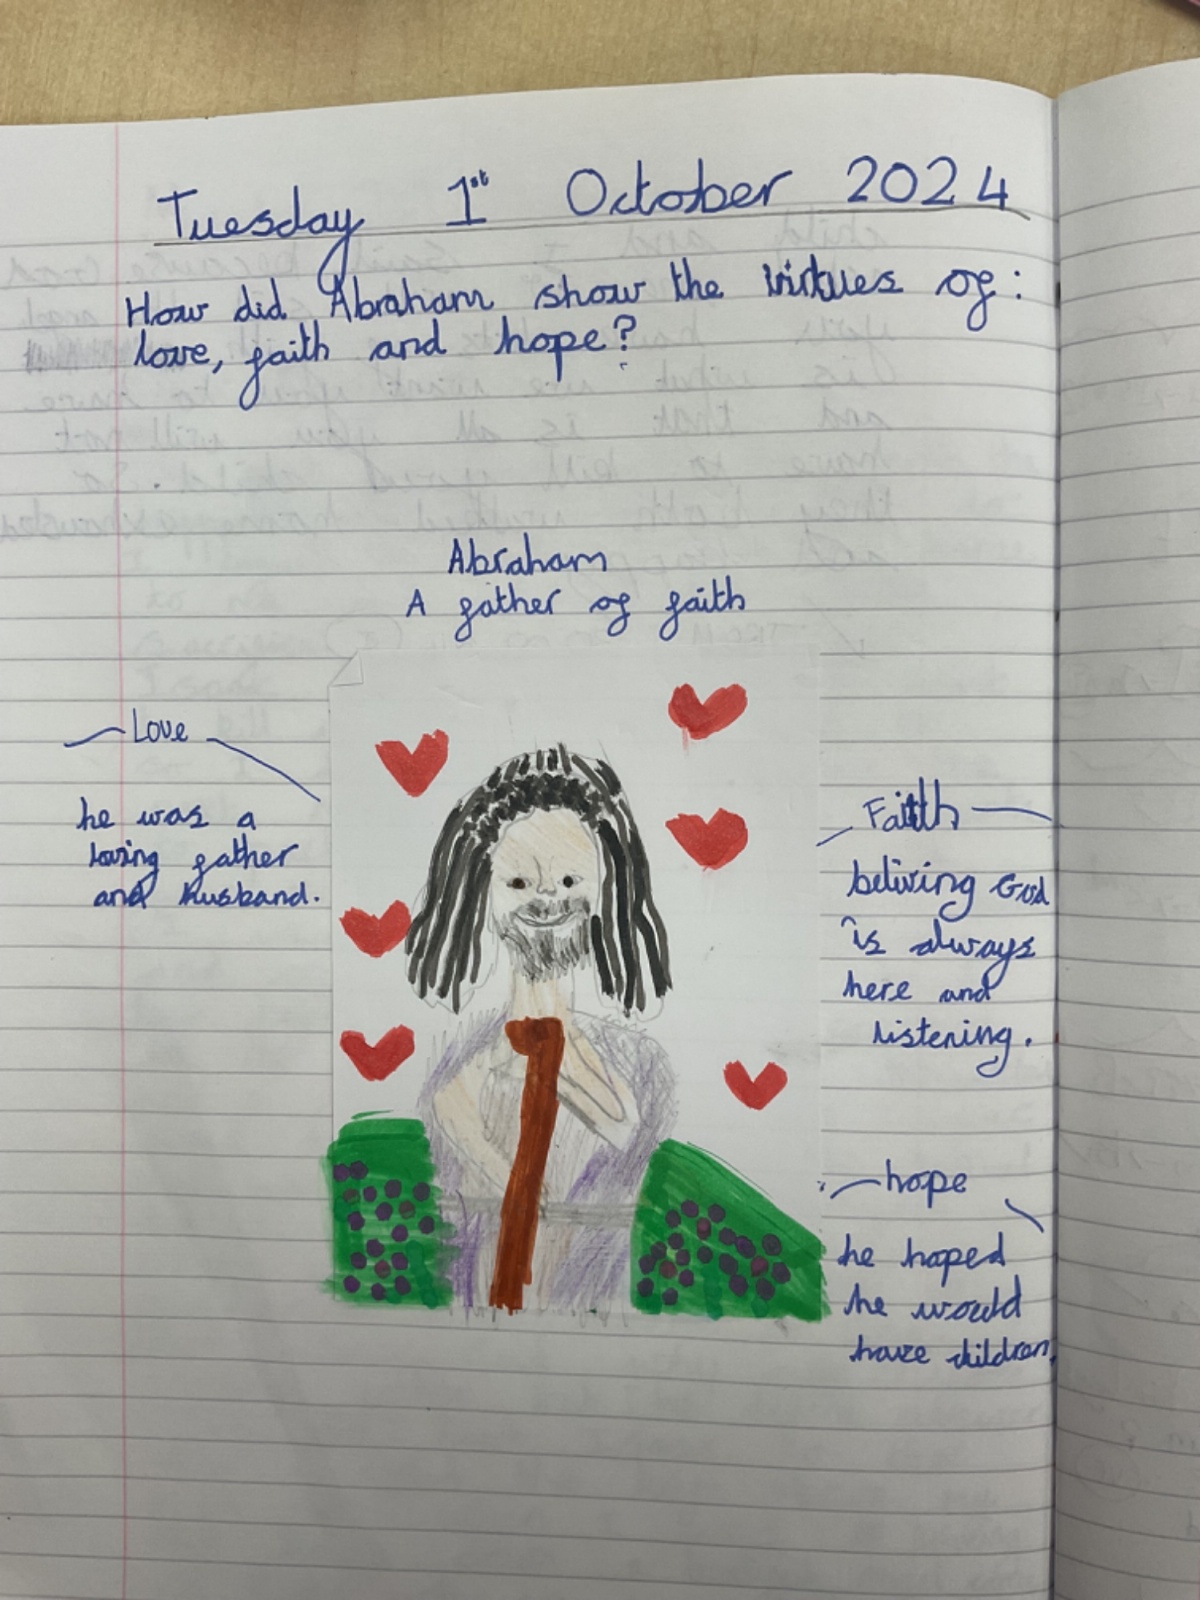 Tuesday 1st October 2024
How did Abraham show the virtues of:
love, faith and hope?
Abraham
A father of faith
Love
he was a
loving father
and husband.
Faith
beliving God
is always
here and
listening.
hope
he hoped
he would
have children.